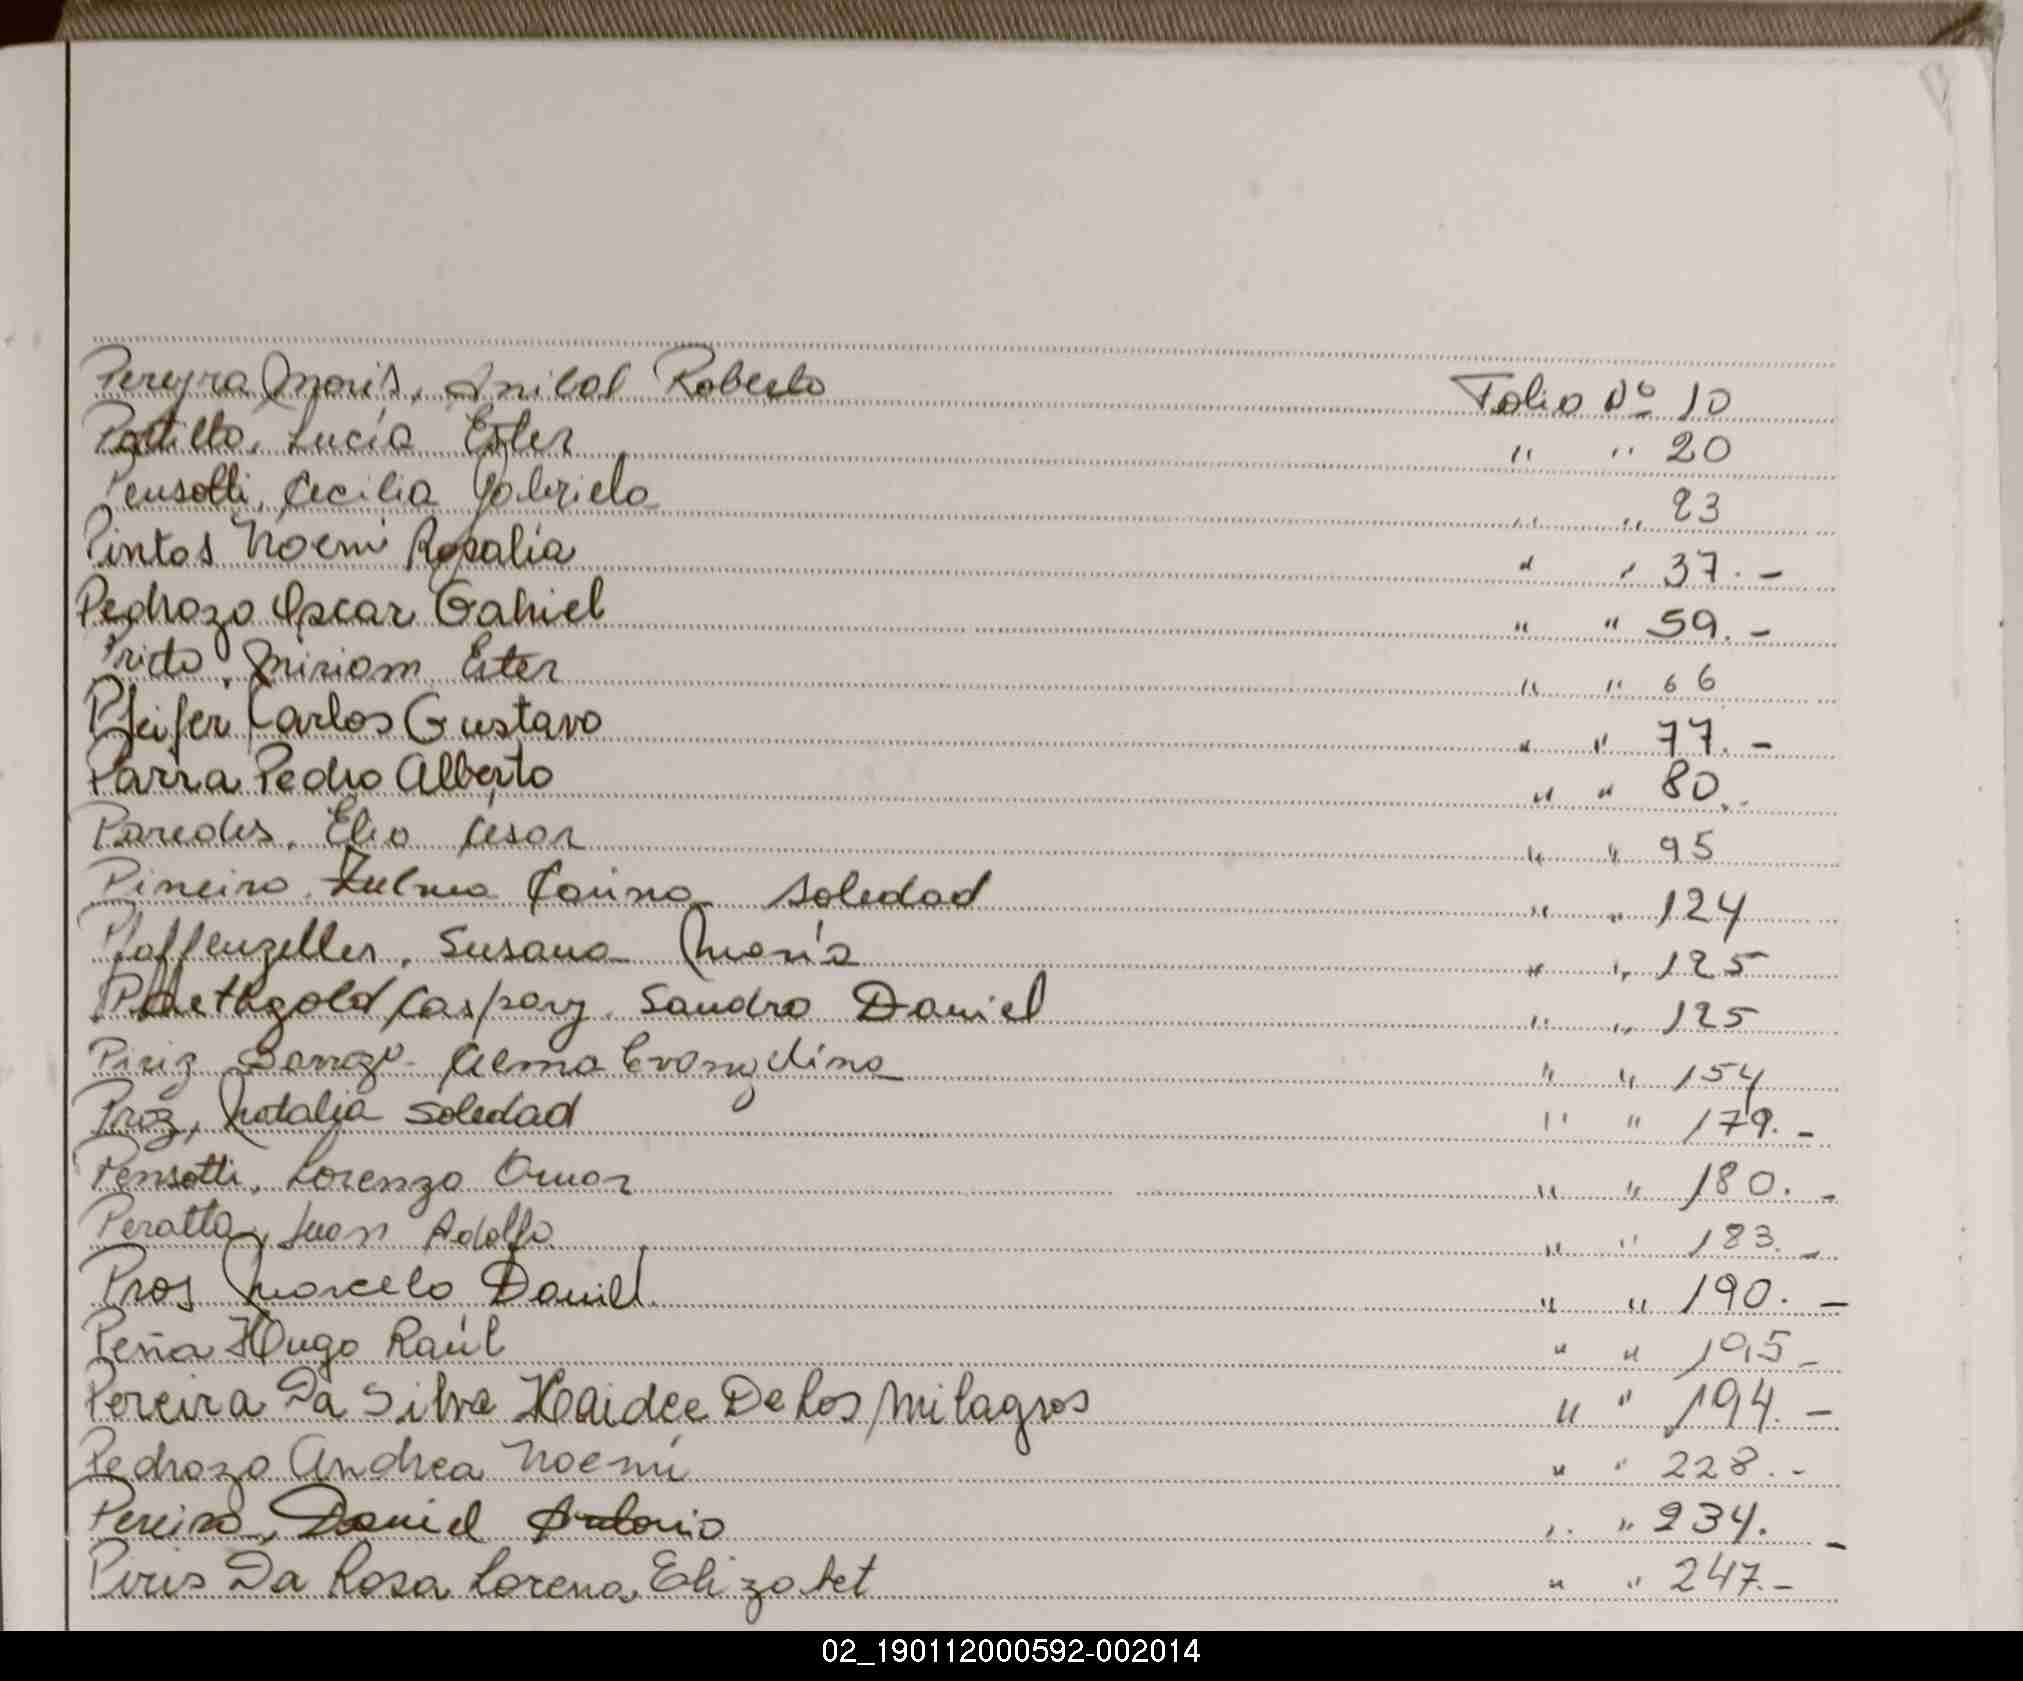 Pereyra Moris, Anibal Roberto Folio Nº 10
Portillo, Lucía Ester " " 20
Pensotti, Cecilia Gabriela " " 23
Pintos Noemi Rosalía " " 37.-
Pedrozo Oscar Gabriel " " 59.-
Prieto, Miriam Ester " " 66
Pfeifer Carlos Gustavo " " 77.-
Parra Pedro Alberto " " 80.-
Paredes, Elio Cesar " " 95
Pineiro, Zulma Carina Soledad " " 124
Pfaffenzeller, Susana María " " 125
Caspary, Sandro Daniel " " 125
Piriz Alma Evangelina " " 154
Proz, Natalia Soledad " " 179.-
Pensotti, Lorenzo Omar " " 180.-
Peratta, Juan Adolfo " " 183.-
Pros Marcelo Daniel. " " 190.-
Peña Hugo Raúl " " 195-
Pereira Da Silva Haidee De Los Milagros " " 194.-
Pedrozo Andrea Noemí " " 228.-
Pereira, Daniel Antonio " " 234.-
Piris Da Rosa Lorena Elizabet " " 247.-
02_190112000592-002014